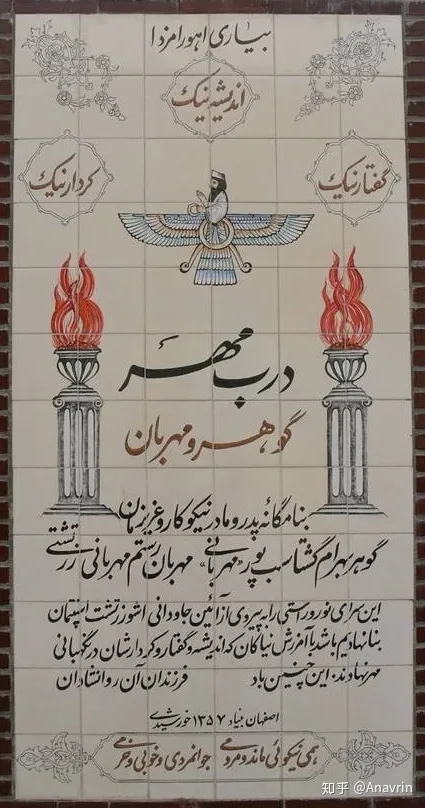 بیاری اهورامزدا
اندیشه نیک
گفتار نیک
کردار نیک
درب مهر
گوهر و مهربان
بنامگانه پدر و مادر نیکوکار و عزیزمان
گوهر بهرام گشتاسب پور «مهربانی» مهربان رستم مهربانی زرتشتی
این سرای نور و راستی را به پیروی از آئین جاودانی اشو زرتشت اسپنتمان
بنا نهادیم باشد با آمرزش نیاکان که اندیشه و گفتار و کردارشان در نگهبانی
مهر نهادند. این چنین باد فرزندان آن روانشادان
اصفهان بنیاد ۱۳۵۷ خورشیدی
همی نیکوئی ماند و مردمی جوانمردی و خوبی و خرمی
知乎 @Anavrin